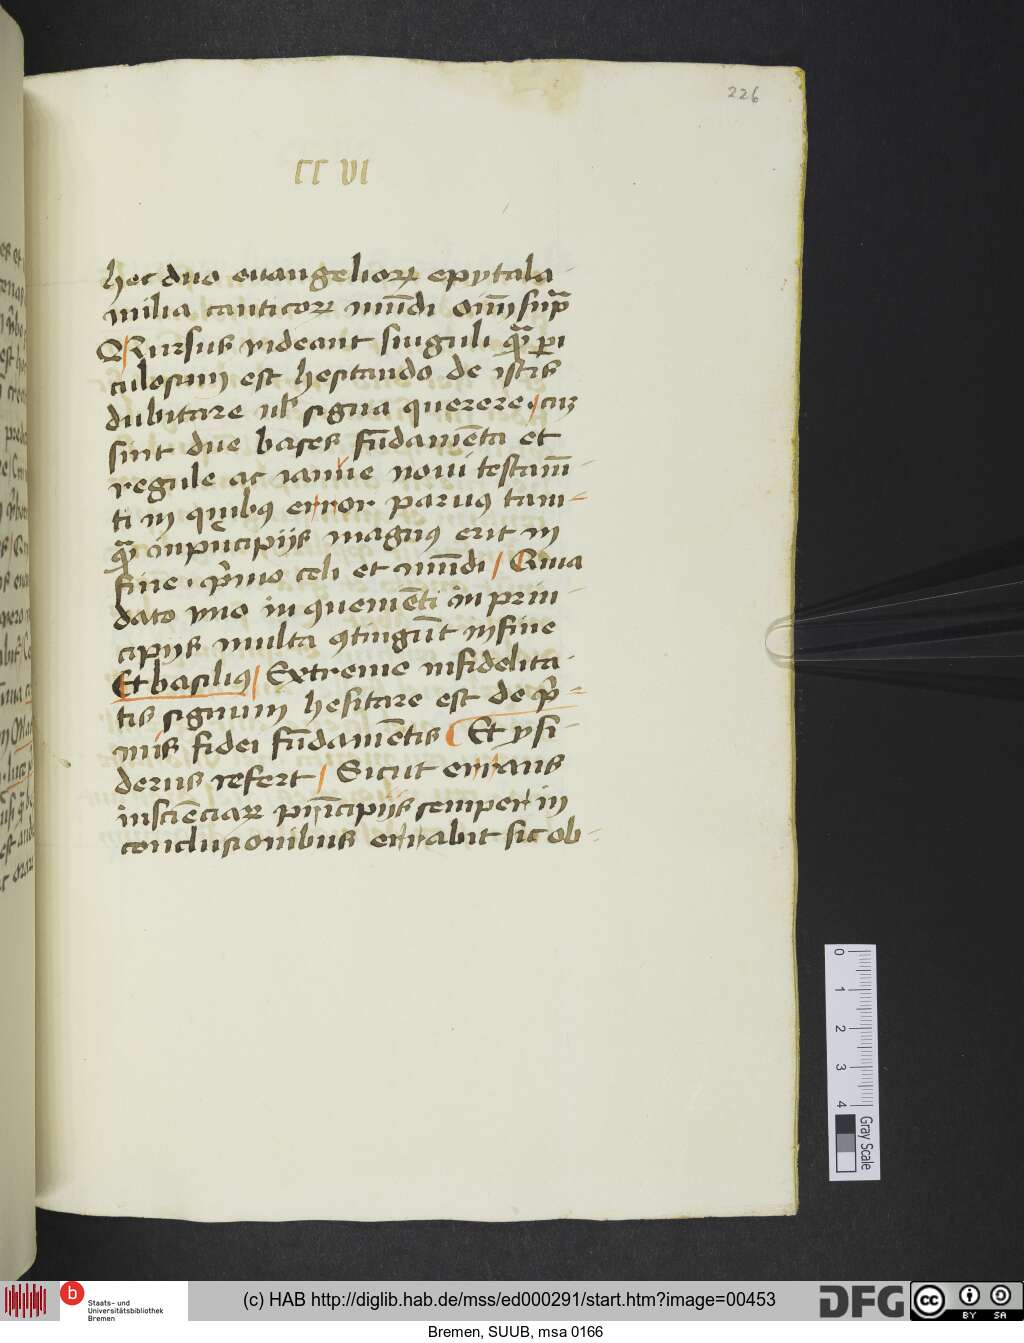 226
CC VI
hec duo euangelioꝝ epytala-
milia canticoꝝ mūdi om̄ supͣ
Rursus videant singuli qͣꝫ ꝑi
culosum est hesitando de istis
dubitare ul̕ signa querere / cuꝫ
sint due bases fūdamēta et
regule ac ianue noui testam̄-
ti in quibꝰ error paruꝰ tam-
qͣꝫ in pͥncipijs magnꝰ erit in
fine · pͥmo celi et mūdi /
dato vno inquemēti in prin-
cipijs multa ꝯtingūt in fine
Et basiliꝰ / Extreme infidelita-
tis signum hesitare est de pͥ-
mis fidei fūdamētis Et ysi
derus refert / Sicut errans
in sciēciaꝝ pͥncipijs semper in
conclusionibus errabit sic ob-
0 1 2 3 4
Gray Scale
b
Staats- und
Universitätsbibliothek
Bremen
(c) HAB http://diglib.hab.de/mss/ed000291/start.htm?image=00453
DFG
cc
BY SA
Bremen, SUUB, msa 0166